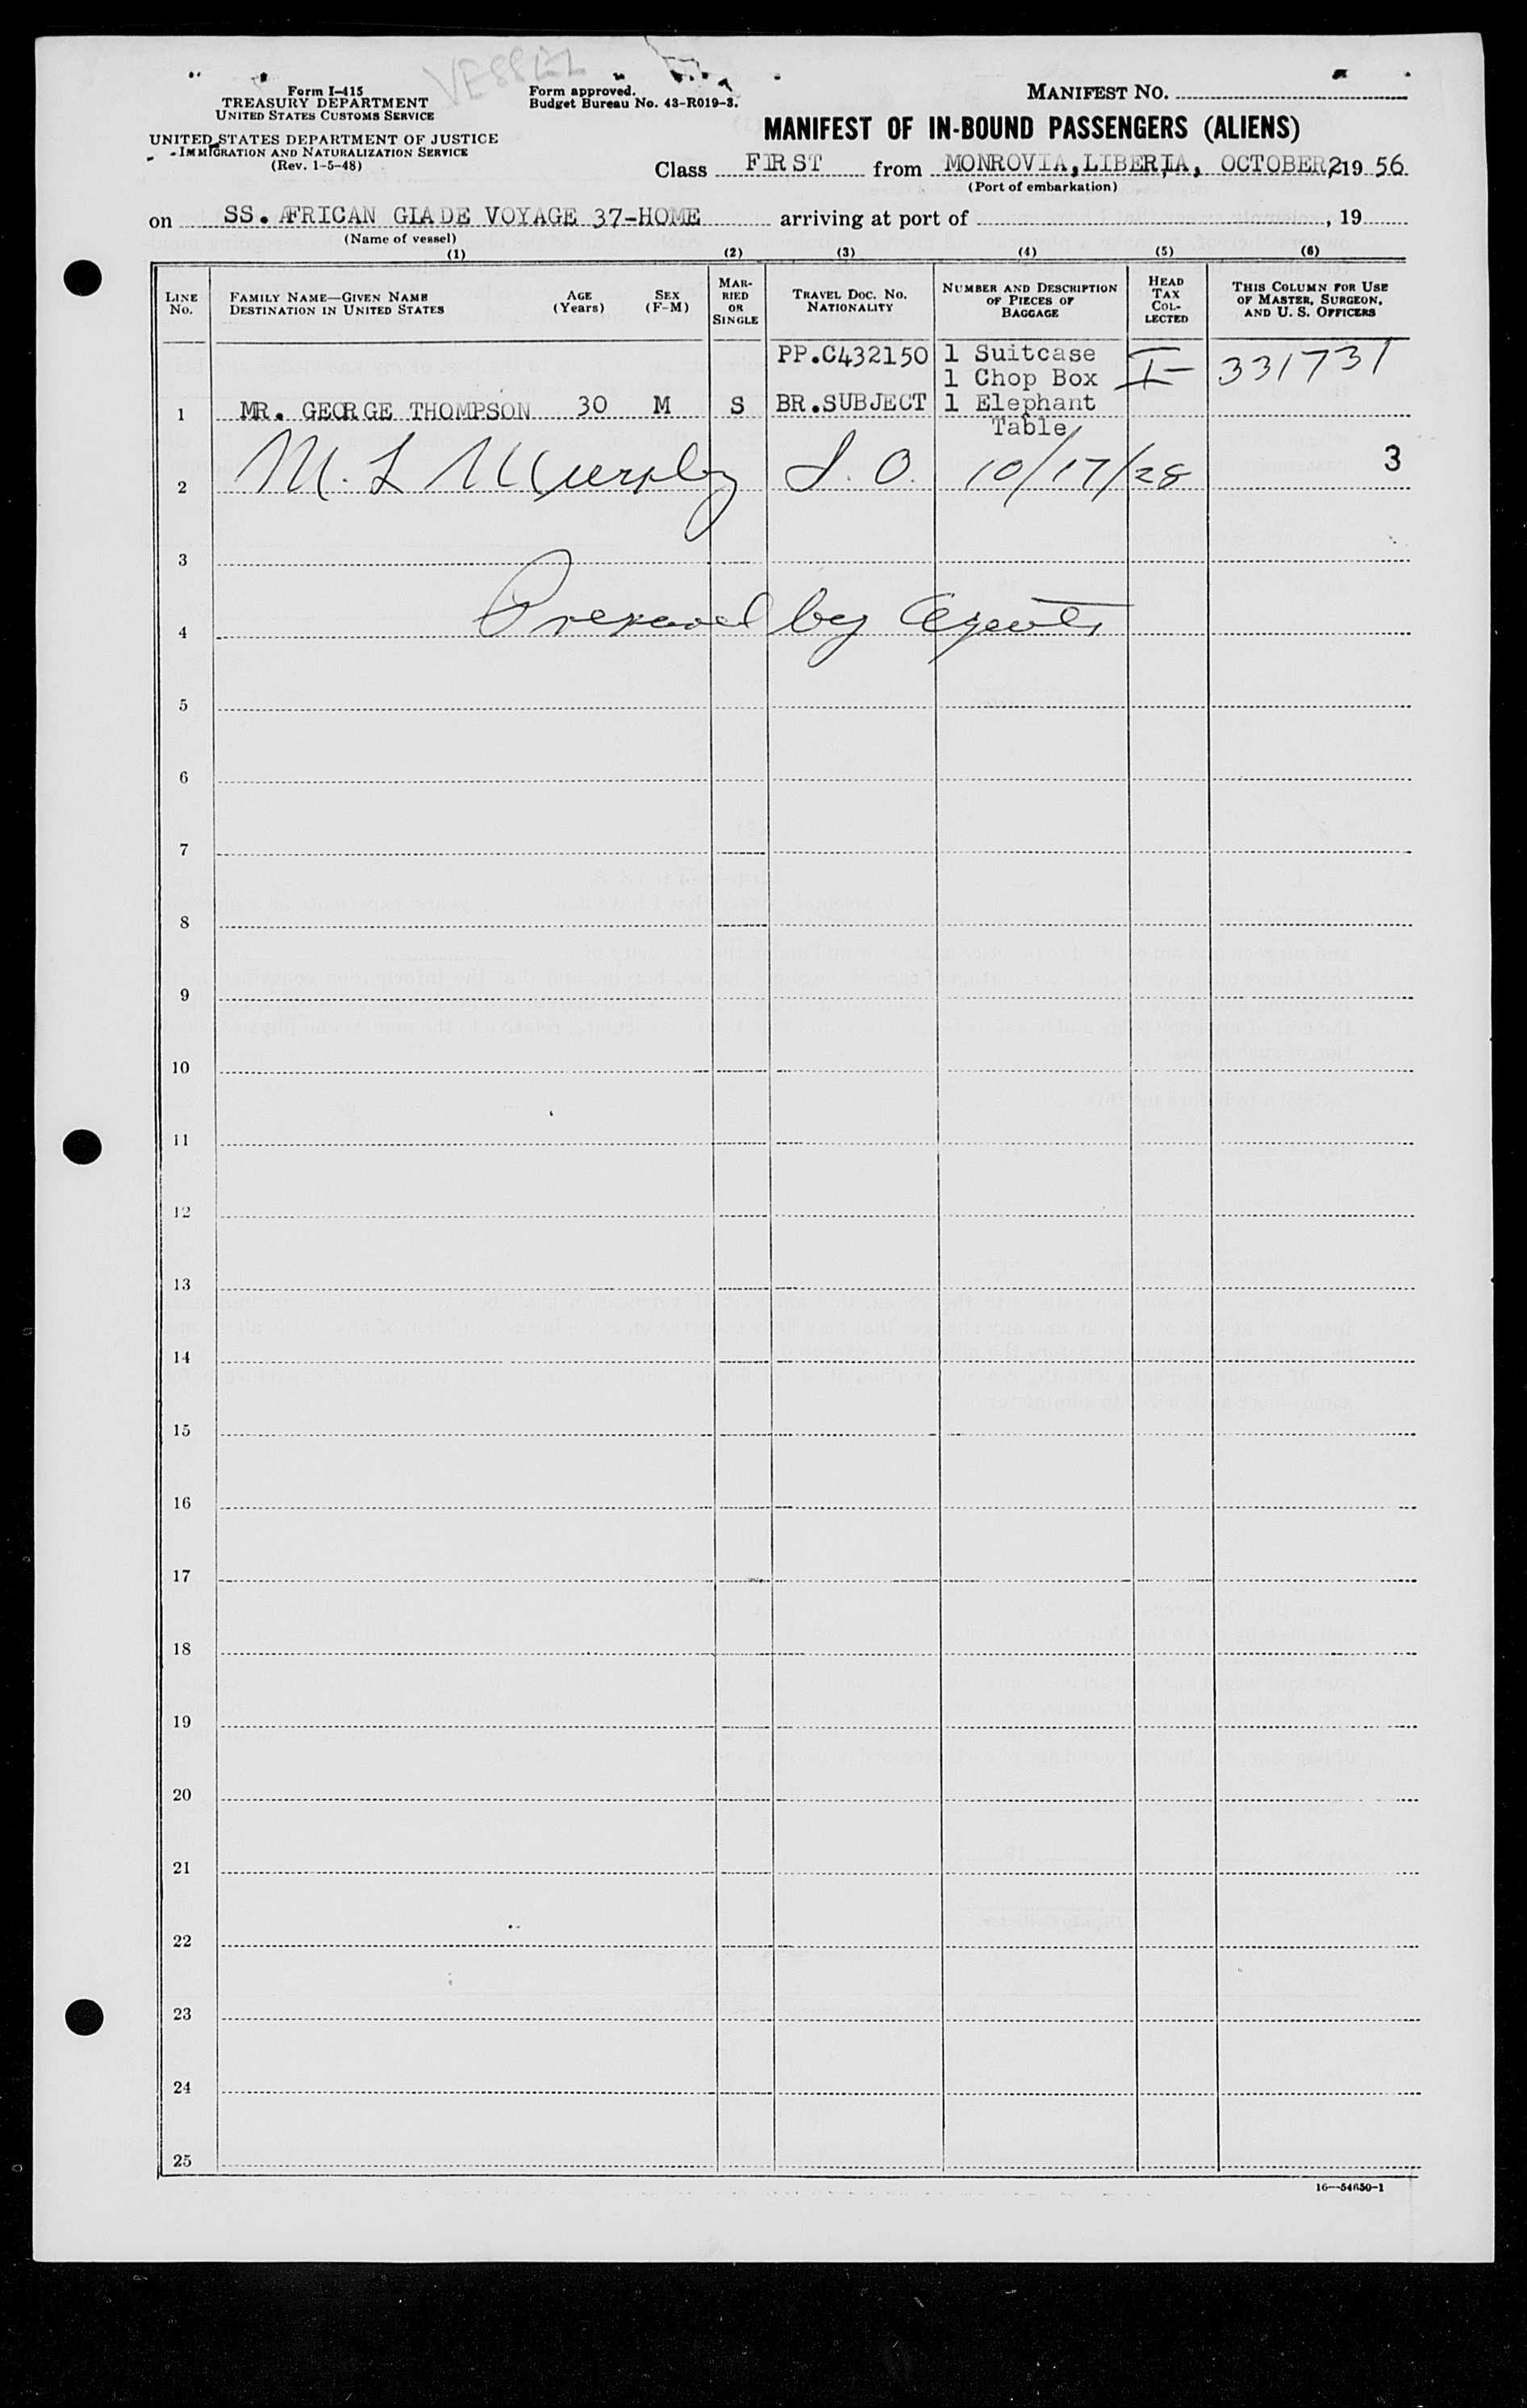 VESSEL
Form I-415
TREASURY DEPARTMENT
UNITED STATES CUSTOMS SERVICE
UNITED STATES DEPARTMENT OF JUSTICE
IMMIGRATION AND NATURALIZATION SERVICE
(Rev. 1-5-48)
Form approved.
Budget Bureau No. 43-R019-3.
MANIFEST NO.
MANIFEST OF IN-BOUND PASSENGERS (ALIENS)
Class FIRST from MONROVIA, LIBERIA, OCTOBER 2, 19 56
(Port of embarkation)
on SS. AFRICAN GLADE VOYAGE 37-HOME arriving at port of , 19
(Name of vessel)
(1) (2) (3) (4) (5) (6)
LINE No. FAMILY NAME—GIVEN NAME DESTINATION IN UNITED STATES AGE (Years) SEX (F-M) MARRIED OR SINGLE TRAVEL DOC. NO. NATIONALITY NUMBER AND DESCRIPTION OF PIECES OF BAGGAGE HEAD TAX COLLECTED THIS COLUMN FOR USE OF MASTER, SURGEON, AND U. S. OFFICERS
PP.C432150 1 Suitcase I- 331731
1 Chop Box
1 MR. GEORGE THOMPSON 30 M S BR.SUBJECT 1 Elephant
Table
2 M. L Murphy I. O. 10/17/28 3
3
4 Prepared by Agents
5
6
7
8
9
10
11
12
13
14
15
16
17
18
19
20
21
22
23
24
25
16—54650-1